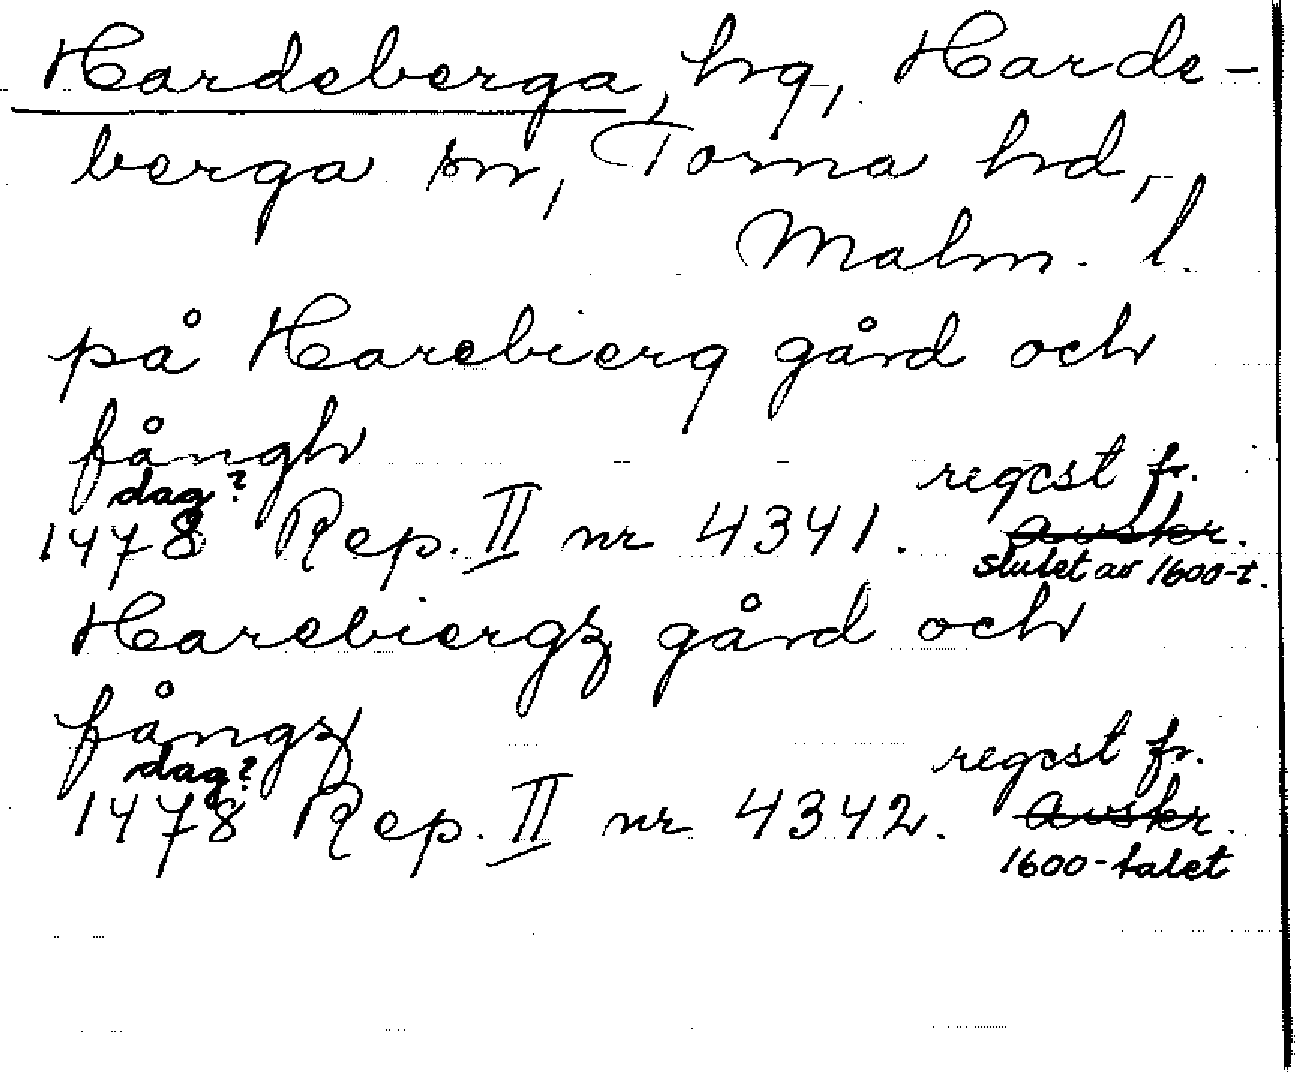 Hardeberga, hg, Harde-
berga sn, Torna hd,
Malm. l.
på Harebierg gård och
fångh
dag?
regest fr.
1478 Rep. II nr 4341. avskr.
slutet av 1600-t.
Harebiergz gård och
fångz
dag?
regest fr.
1478 Rep. II nr 4342. avskr.
1600-talet